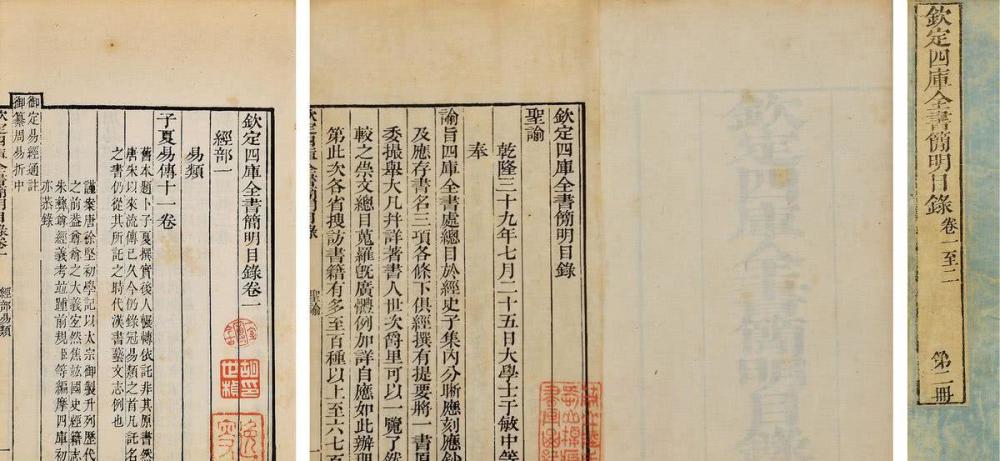 欽定四庫全書簡明目錄 卷一至二 第二冊
欽定四庫全書簡明目錄
聖諭
乾隆三十九年七月二十五日大學士于敏中等
奉
諭旨四庫全書處總目於經史子集內分晰應刻應鈔
及應存書名三項各條下俱經撰有提要將一書原
委撮舉大凡並詳著書人世次爵里可以一覽了然
較之崇文總目蒐羅既廣體例加詳自應如此辦理
第此次各省搜訪書籍有多至百種以上至六七百
欽定四庫全書簡明目錄 聖諭
欽定四庫全書簡明目錄卷一
經部一
易類
子夏易傳十一卷
舊本題卜子夏撰實後人輾轉依託非其原書然
唐宋以來流傳已久今仍錄冠易類之首凡託名
之書仍從其所託之時代漢書藝文志例也
謹案唐徐堅初學記以太宗御製升列歷代
之前蓋尊尊之大義焦竑國史經籍志
朱彝尊經義考並踵前規臣等編摩四庫初
亦恭錄
御定易經通註
御纂周易折中
欽定四庫全書簡明目錄卷一 經部易類